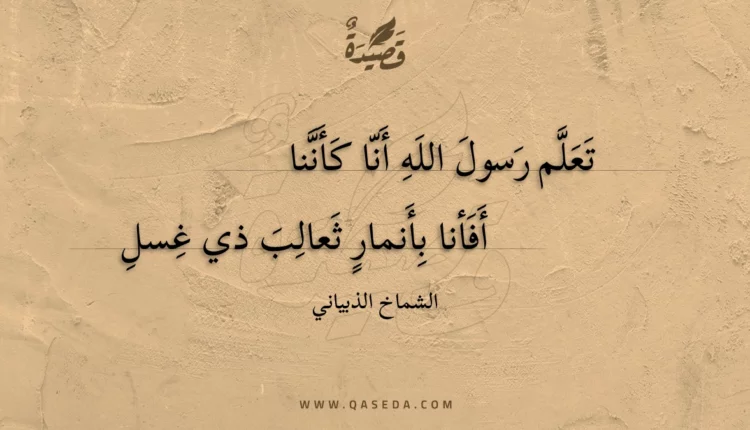 قَصِيدَةٌ
تَعَلَّم رَسولَ اللَهِ أَنّا كَأَنَّنا
أَفَأنا بِأَنمارٍ ثَعالِبَ ذي غِسلِ
الشماخ الذبياني
WWW.QASEDA.COM